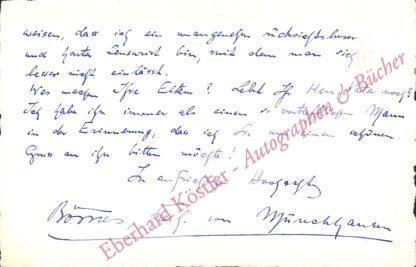 weisen, dass ich ein unangenehm rücksichtsloser
und harter Zensurist bin, mit dem man sich
besser nicht einlässt.
Was machen Ihre Eltern? Lebt Ihr Herr Vater noch?
Ich habe ihn immer als einen so Mann
in der Erinnerung, dass ich Sie um einen schönen
Gruss an ihn bitten möchte!
In Hochachtg
Börries von Münchhausen
Eberhard Köstler - Autographen & Bücher